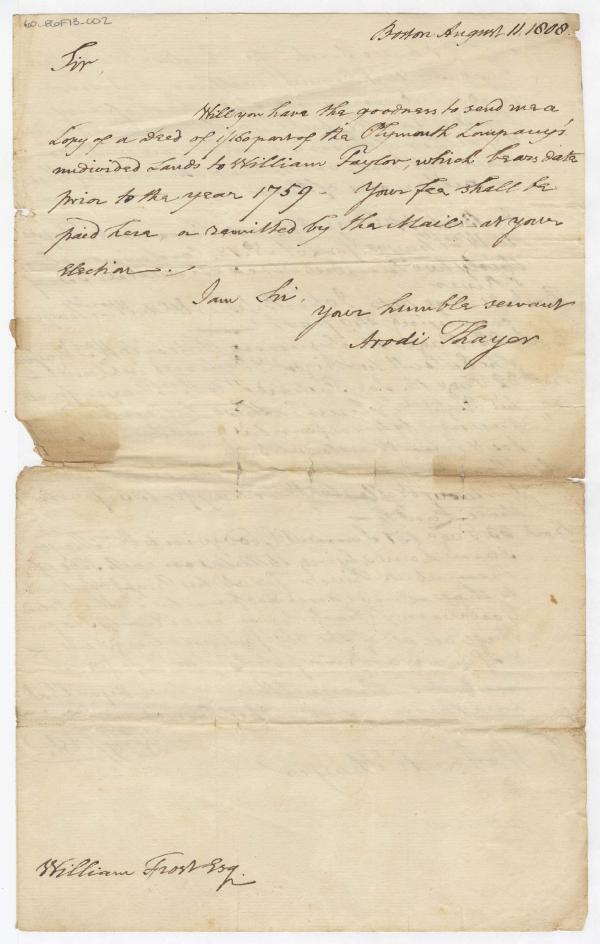 60-B6F13-002
Boston August 11. 1808.
Sir,
Will you have the goodness to send me a
Copy of a Deed of part of the Plymouth Company's
undivided Lands to William Taylor, which bears date
prior to the year 1759 - Your fee shall be
paid here or remitted by the Mail at your
Election.
I am Sir.
your humble servant
Arodi Thayer
William Frost Esq.